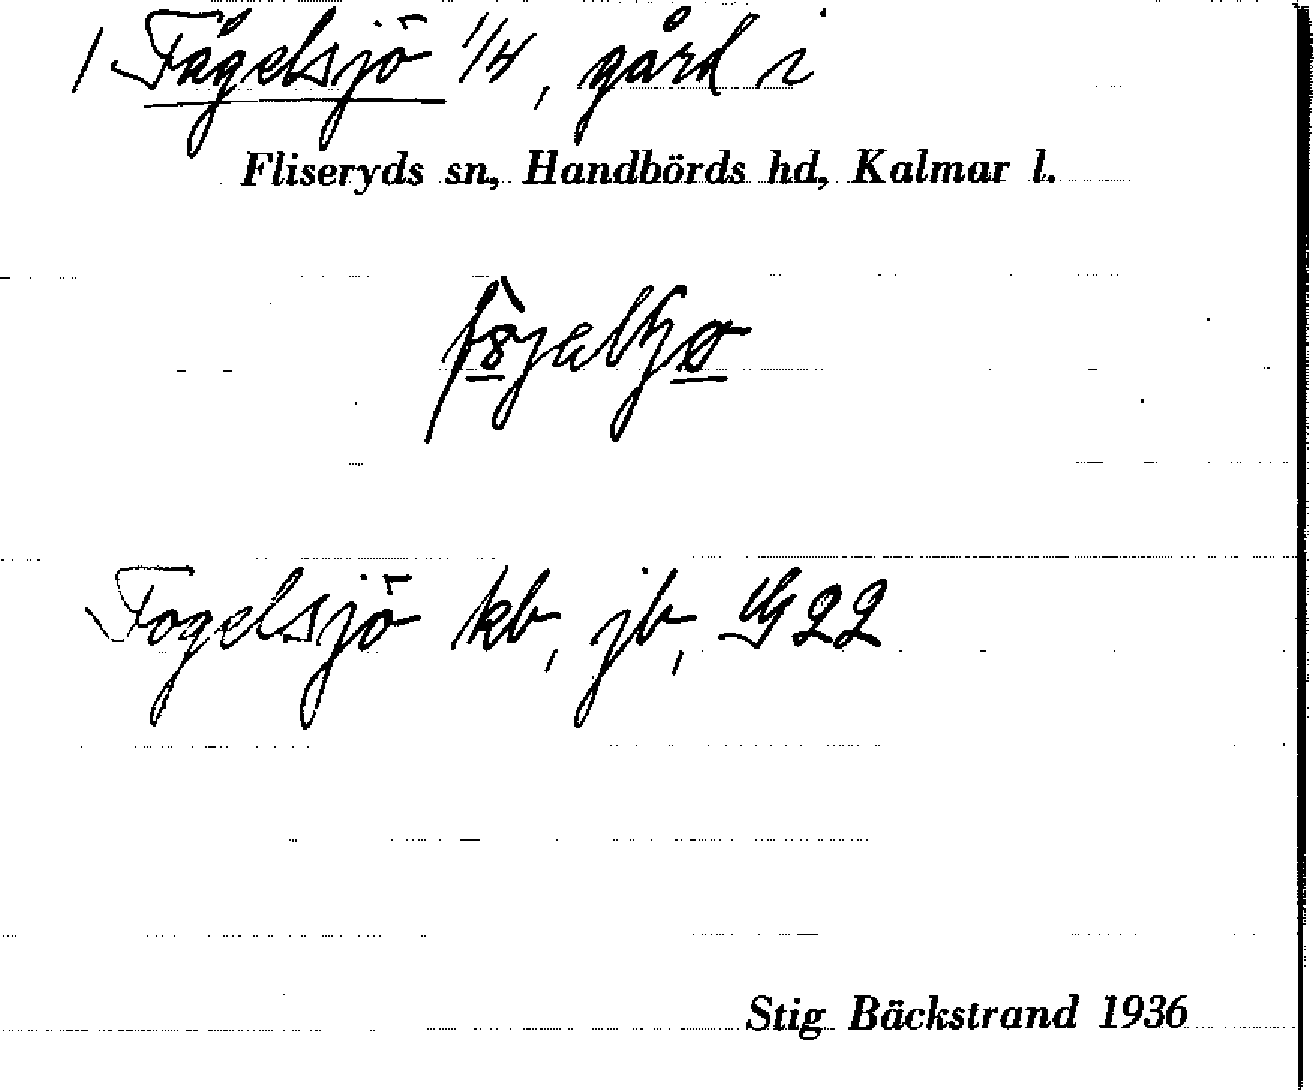 / Fågelsjö 1/4, gård i
Fliseryds sn, Handbörds hd, Kalmar l.
Fogelsjö kb, jb, G22
Stig Bäckstrand 1936